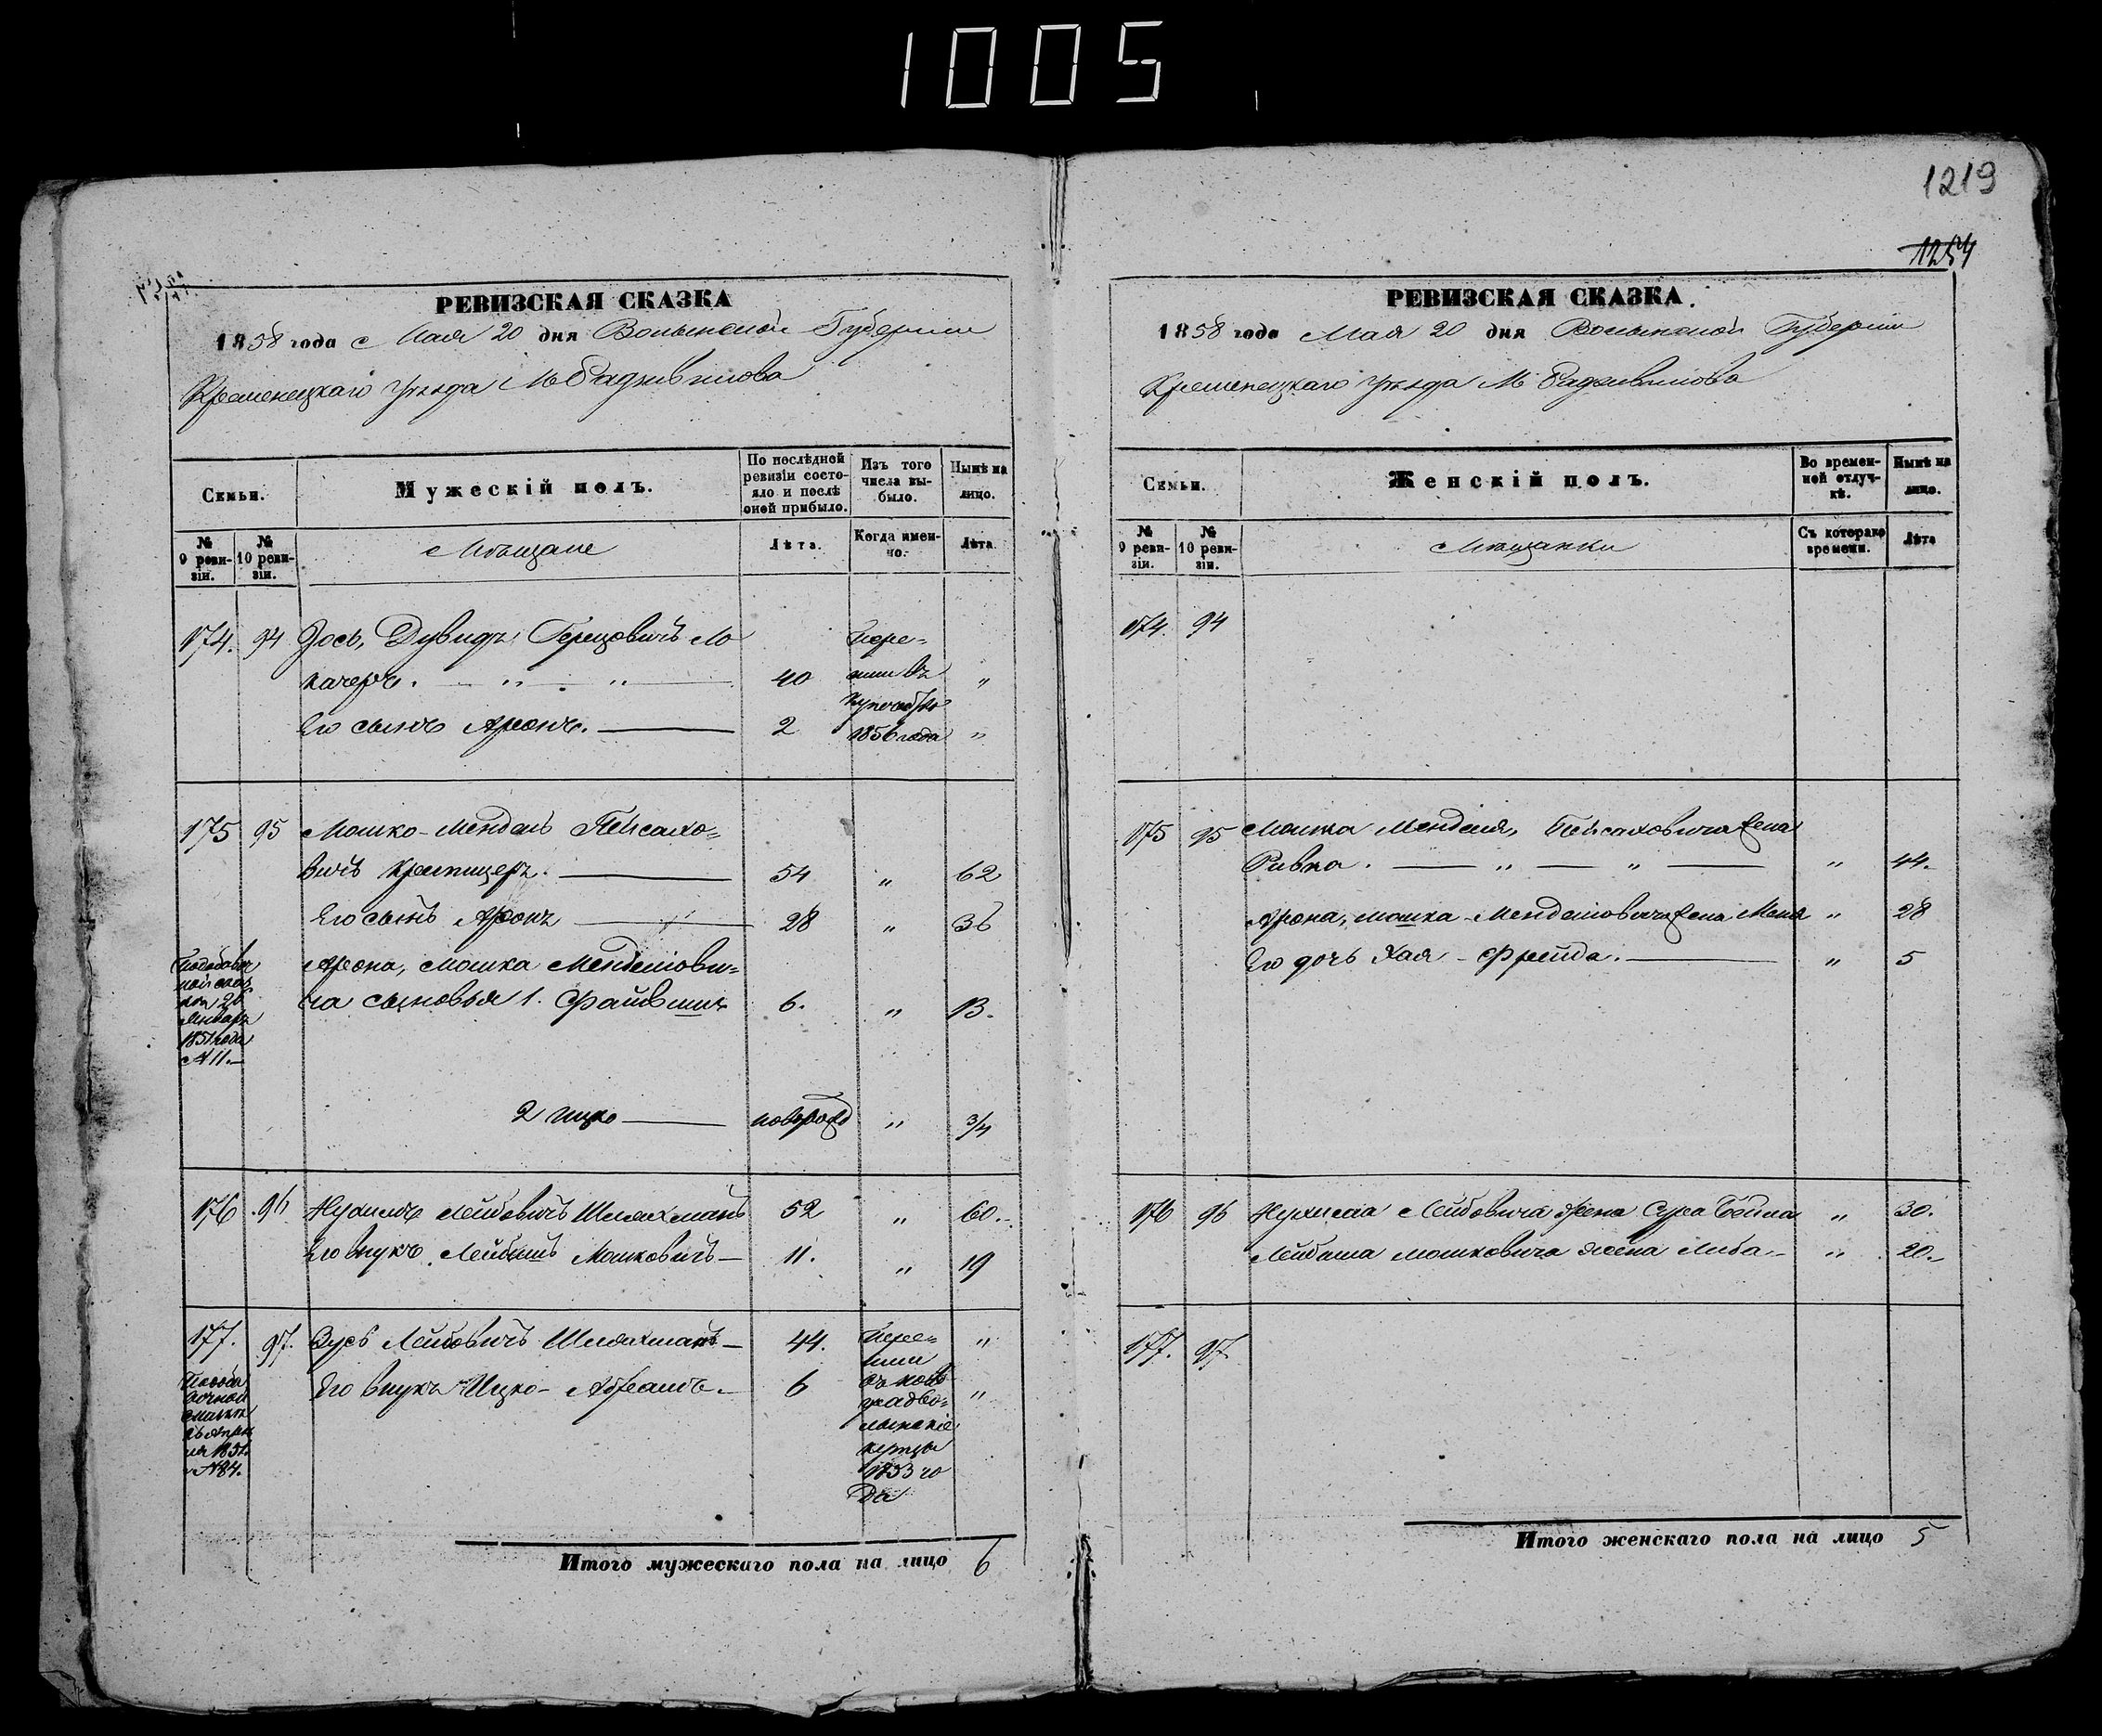 1005
1219
1254
РЕВИЗСКАЯ СКАЗКА
1858 года Мая 20 дня Волынской Губернии
Кременецкаго уѣзда М Радзивилова
Семьи.
Мужескій полъ.
По послѣдней ревизіи состояло и послѣ оной прибыло.
Изъ того числа выбыло.
Нынѣ на лицо.
№ 9 ревизіи.
№ 10 ревизіи.
Мѣщане
Лѣта.
Когда именно.
Лѣта.
174. 94 Зось, Дувидъ Герцовичъ
40 "
Его сынъ Аронъ. 2 1856 года "
175 95 Мошко-Мендель Пейсахо=
вичъ 54 " 62
Его сынъ Аронъ 28 " 36
Арона, Мошка Менделеви=
ча сыновья 1. Файвишъ 6. " 13.
1851 года
№ 11.
2 Ицко новорожд " 3/4
176 96 Нухимъ Лейбовичъ Шлеахманъ 52 " 60.
Его внукъ Лейбишъ Мошковичъ 11. " 19
177. 97. Зусь Лейбовичъ Шлеахманъ 44. Пере= "
Его внукъ Ицко-Абрамъ. 6 шли "
въ ново
градво=
лынскіе
купцы
1853 го
да
№ 84.
Итого мужескаго пола на лицо 6
РЕВИЗСКАЯ СКАЗКА.
1858 года Мая 20 дня Волынской Губернии
Кременецкаго уѣзда М Радзивилова
Семьи.
Женскій полъ.
Во временной отлучкѣ.
Нынѣ на лицо.
№ 9 ревизіи.
№ 10 ревизіи.
Мѣщанки
Съ котораго времени.
Лѣта
174. 94
175 95 Мошка Менделя, Пейсаховича жена
Ривка. " 44.
Арона, Мошка-Менделовича жена Меня " 28
Его дочь Хая-Фрейда. " 5
176 96 Нухима Лейбовича жена Сура Бейла " 30.
Лейбиша Мошковича жена Либа " 20.
177. 97.
Итого женскаго пола на лицо 5